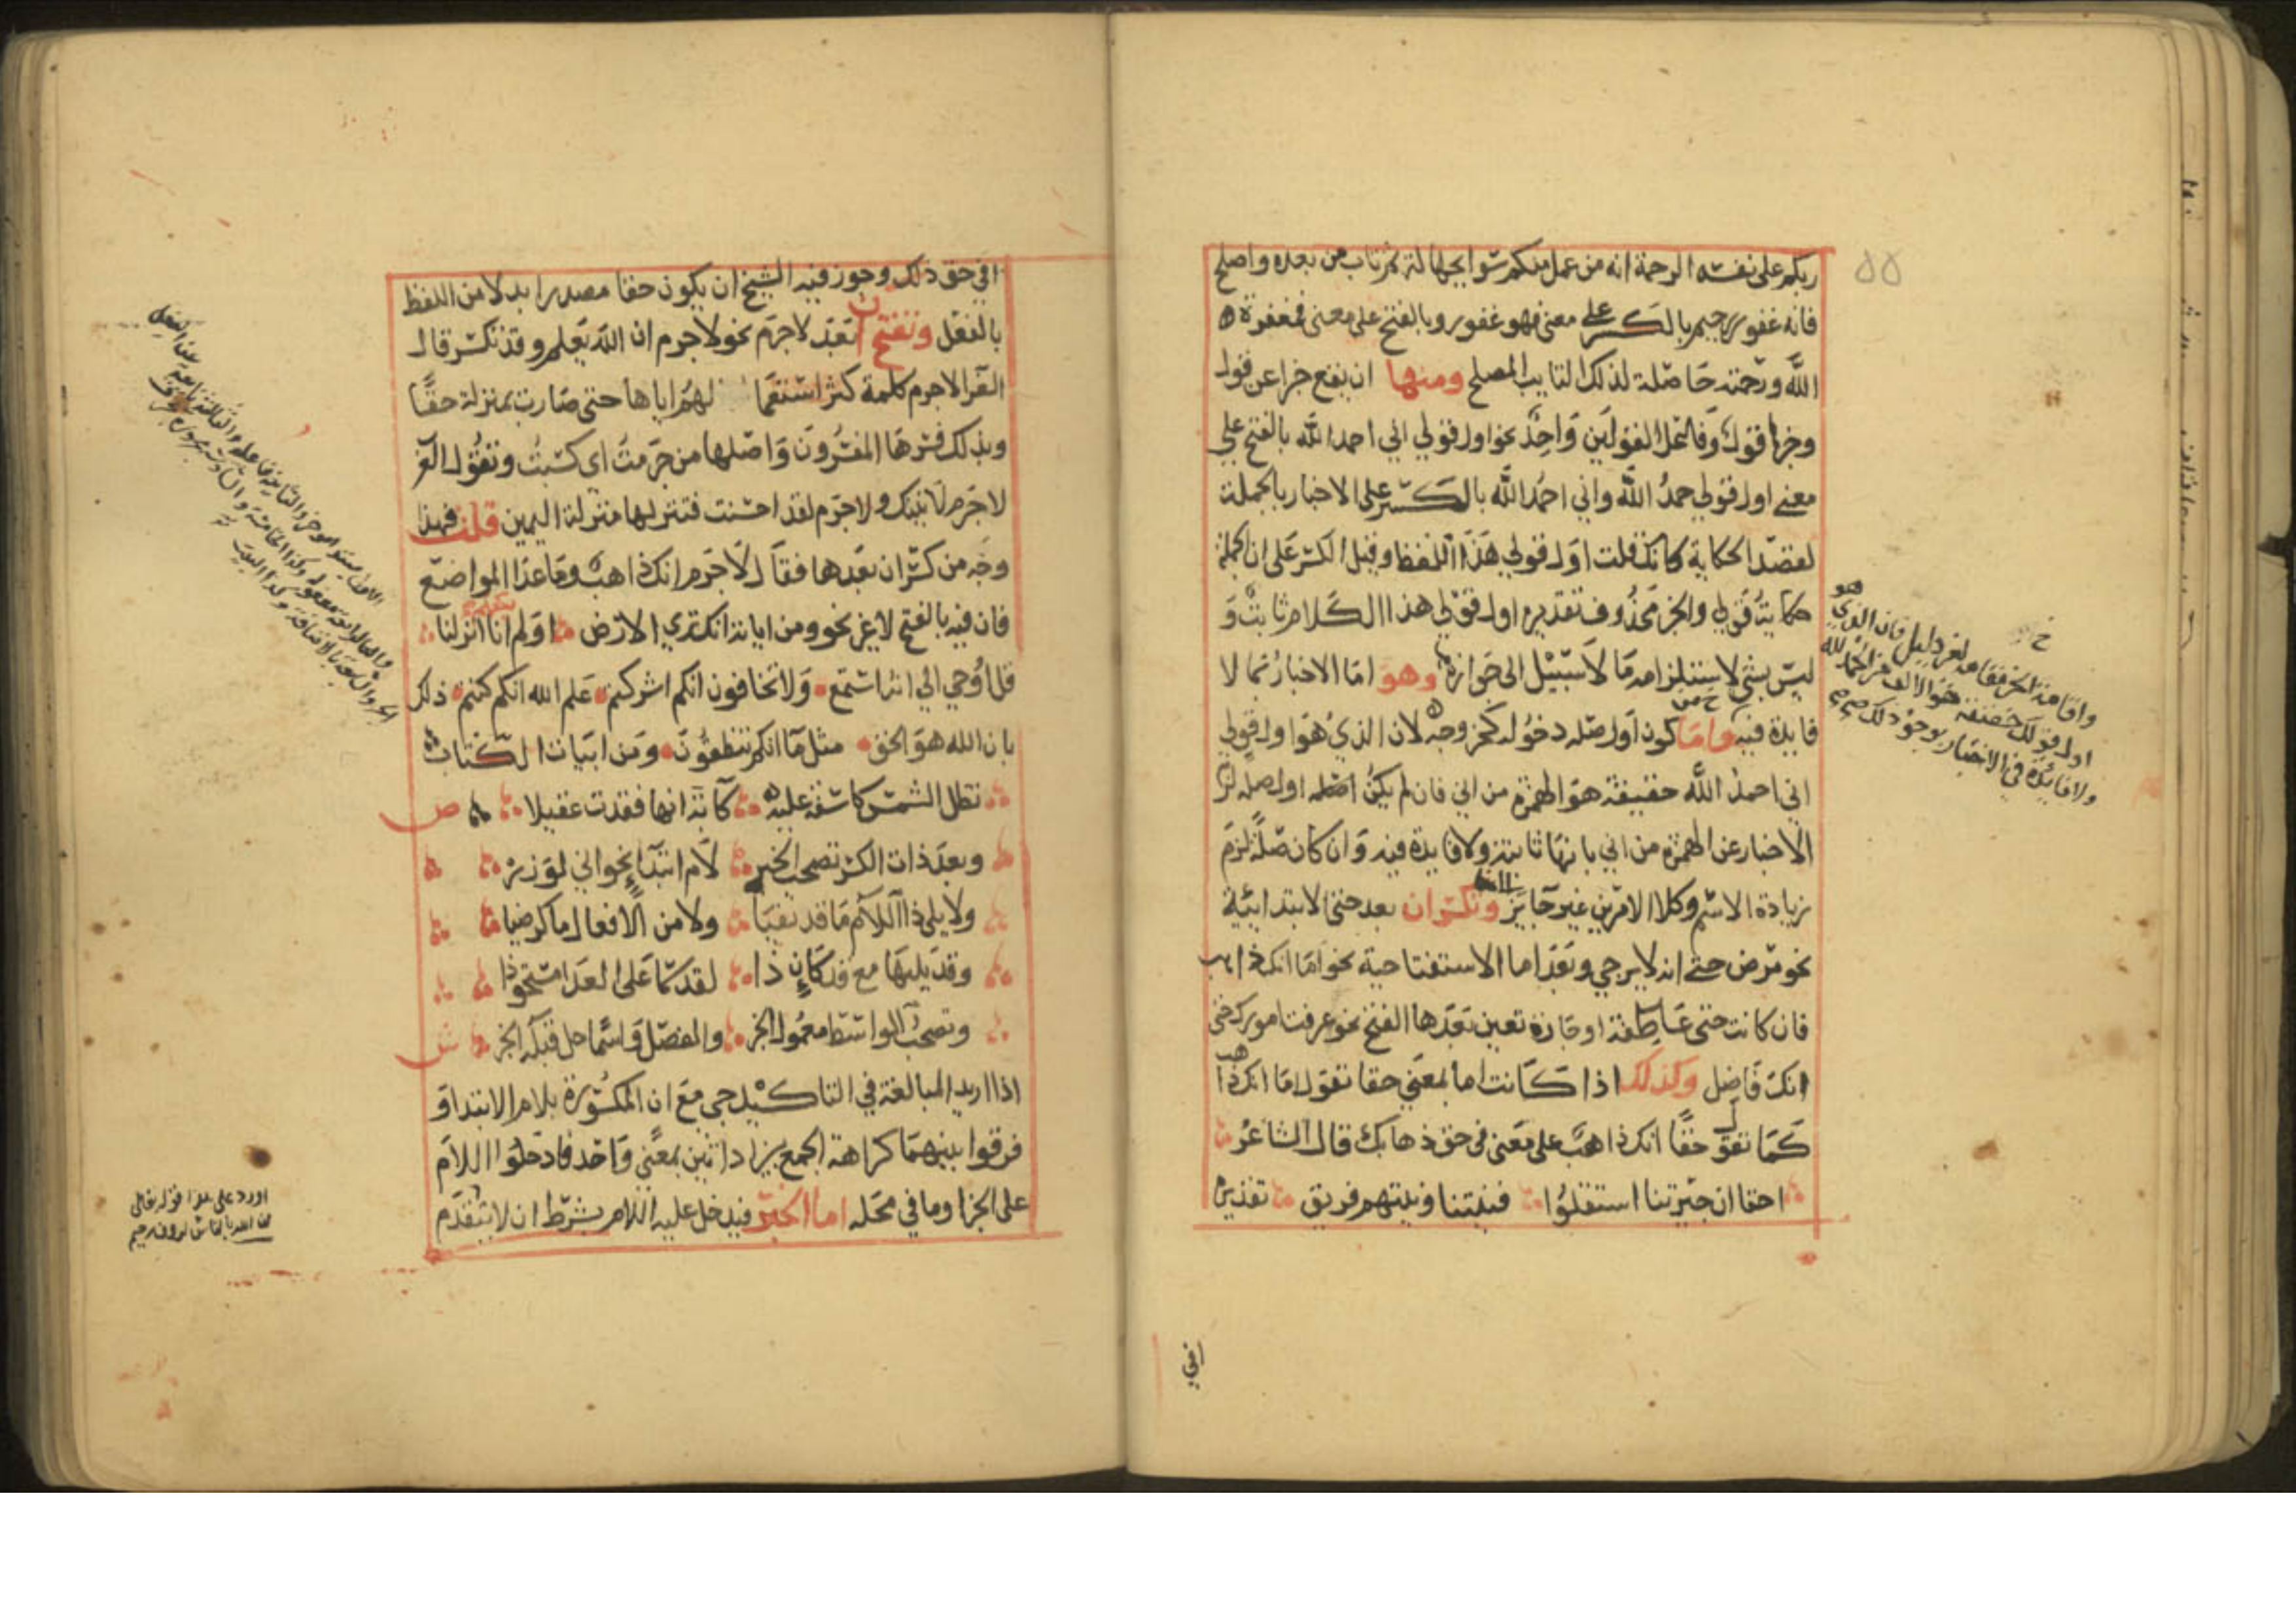 ربكم على نفسه الرحمة انه من عمل منكم سوا بجهالة ثم تاب من بعده واصلح
فانه غفور رحيم بالكسر على معنى فهو غفور وبالفتح على معنى فمغفرة
الله ورحمته حاصلة لذلك التايب المصلح ومنها ان يقع خبرا عن قول
وخبرها قول وفاعل القولين واحد نحو اول قولي اني احمد الله بالفتح على
معنى اول قولي حمد الله واني احمد الله بالكسر على الاخبار بالجملة
لقصد الحكاية كانك قلت اول قولي هذا اللفظ وقيل الكسر على ان الجملة
حكاية قولي والخبر محذوف تقديره اول قولي هذا الكلام ثابت و
ليس بشي لاستلزامه ما لا سبيل الى جوازه وهو اما الاخبار بما لا
فايدة فيه واما كون اول صلة دخوله كخروجه لان الذي هو اول قولي
اني احمد الله حقيقة هو الهمزة من اني فان لم يكن اصله اول صلة لزم
الاخبار عن الهمزة من اني بانها ثابتة ولا فايدة فيه وان كان صلة لزم
زيادة الاسم وكلا الامرين غير جايز وتكسر ان بعد حتى الابتدائية
نحو مرض حتى انه لا يرجى وبعد اما الاستفتاحية نحو اما انك ذاهب
فان كانت حتى عاطفة او جارة تعين بعدها الفتح نحو عرفت امورك حتى
انك فاضل وكذلك اذا كانت اما بمعنى حقا تقول اما انك ذاهب
كما تقول حقا انك ذاهب على معنى في حق ذهابك قال الشاعر
احقا ان جيرتنا استقلوا فنيتنا ونيتهم فريق تقديره
افي
افي حق ذلك وجوز فيه الشيخ ان يكون حقا مصدرا بدلا من اللفظ
بالفعل وتفتح ان بعد لا جرم نحو لا جرم ان الله يعلم وقد تكسر قال
الفرا لا جرم كلمة كثر استعما لهم اياها حتى صارت بمنزلة حقا
وبذلك فسرها المفسرون واصلها من جرمت اى كسبت وتقول العرب
لا جرم لاتينك ولا جرم لقد احسنت فتنزلها منزلة اليمين قلت فهذا
وجه من كسر ان بعدها فقال لا جرم انك ذاهب وما عدا المواضع
فان فيه بالفتح لا غير نحو ومن اياته انك ترى الارض اولم يكفهم انا انزلنا
قل اوحي الي انه استمع ولا تخافون انكم اشركتم علم الله انكم كنتم ذلك
بان الله هو الحق مثل ما انكم تنطقون ومن ابيات الكتاب
تظل الشمس كاسفة عليه كآبة انها فقدت عقيلا ص
وبعد ذات الكسر تصحب الخبر لام ابتداء نحو اني لوزر
ولا يلي ذا اللام ما قد نفيا ولا من الافعال ما كرضيا
وقد يليها مع قد كان ذا لقد سما على العدا مستحوذا
وتصحب الواسط معمول الخبر والفصل واسما حل قبله الخبر ش
اذا اريد المبالغة في التاكيد جي مع ان المكسورة بلام الابتدا و
فرقوا بينهما كراهة الجمع بين اداتين بمعنى واحد فادخلوا اللام
على الخبر او ما في محله اما الخبر فيدخل عليه اللام بشرط ان لا يتقدم
اورد على هذا قوله تعالى
ان الله بالناس لروف رحيم